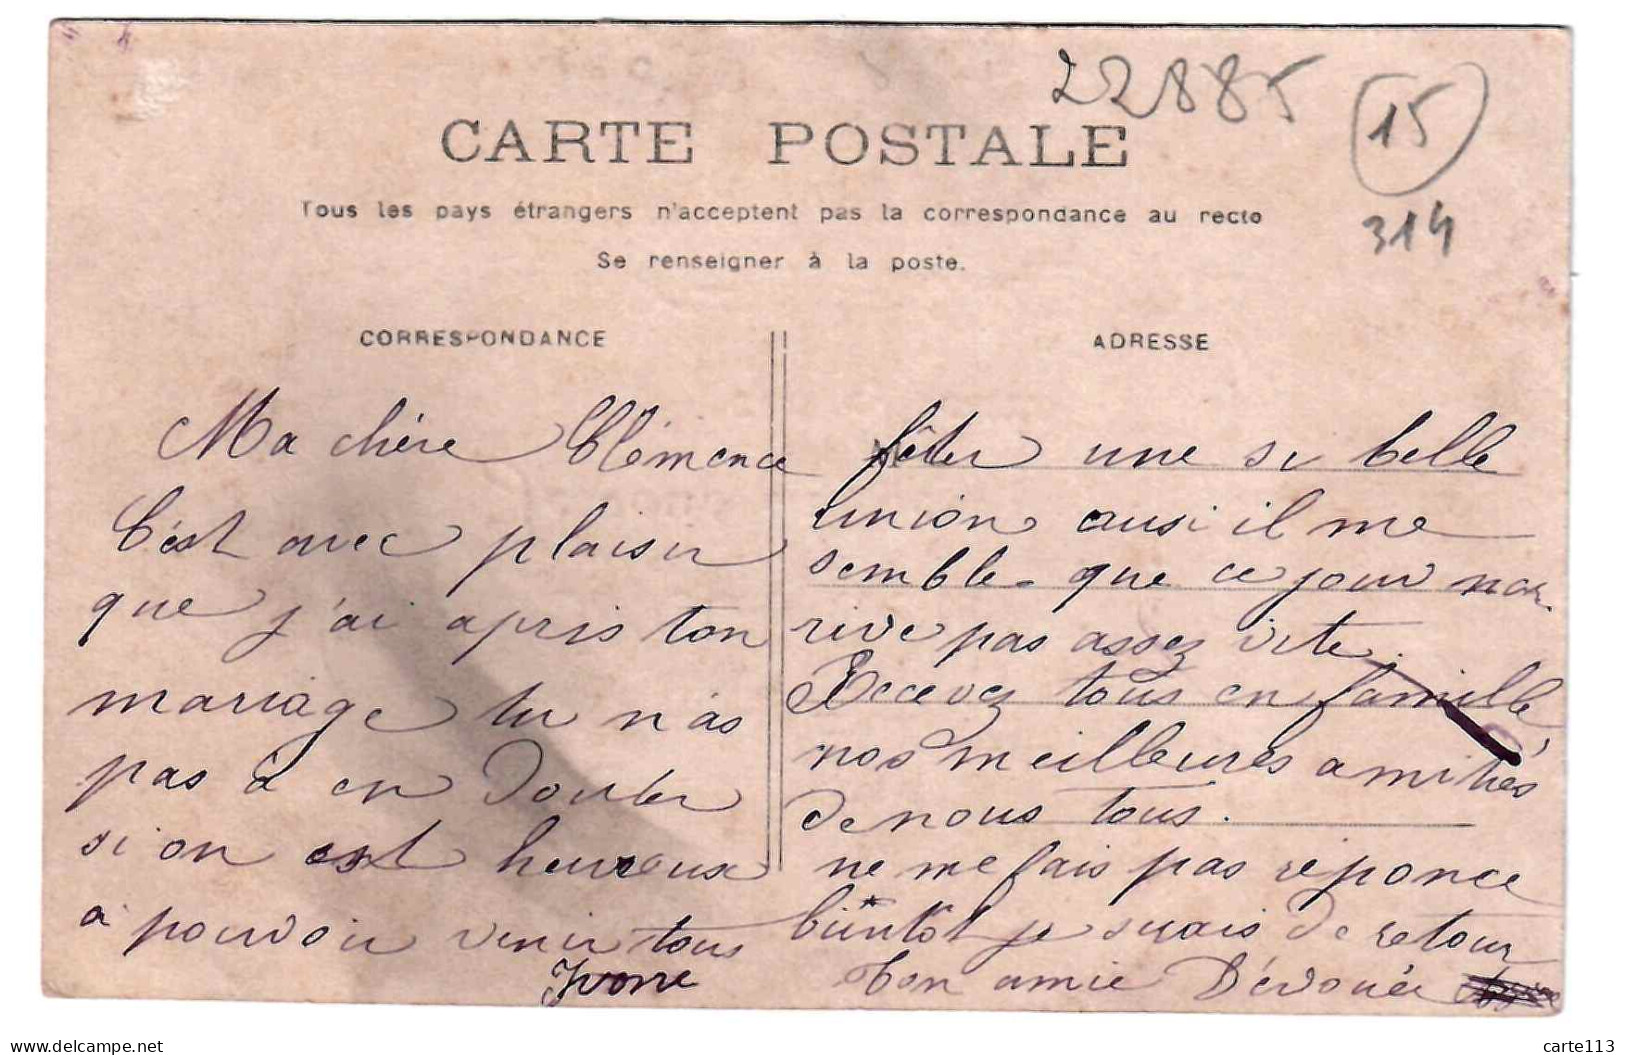 22885
15
314
CARTE POSTALE
Tous les pays étrangers n'acceptent pas la correspondance au recto
Se renseigner à la poste.
CORRESPONDANCE
Ma chère Clémence
C'est avec plaisir
que j'ai apris ton
mariage tu n'as
pas à en douter
si on est heureux
a pouvoir venir tous
Ivone
ADRESSE
fêter une si belle
union ausi il me
semble que ce jour nar
rive pas assez vite.
Recevez tous en famille
nos meilleures amitiés
de nous tous.
ne me fais pas réponce
bientôt je serais de retour
Ton amie Dévouée
delcampe.net
carte113